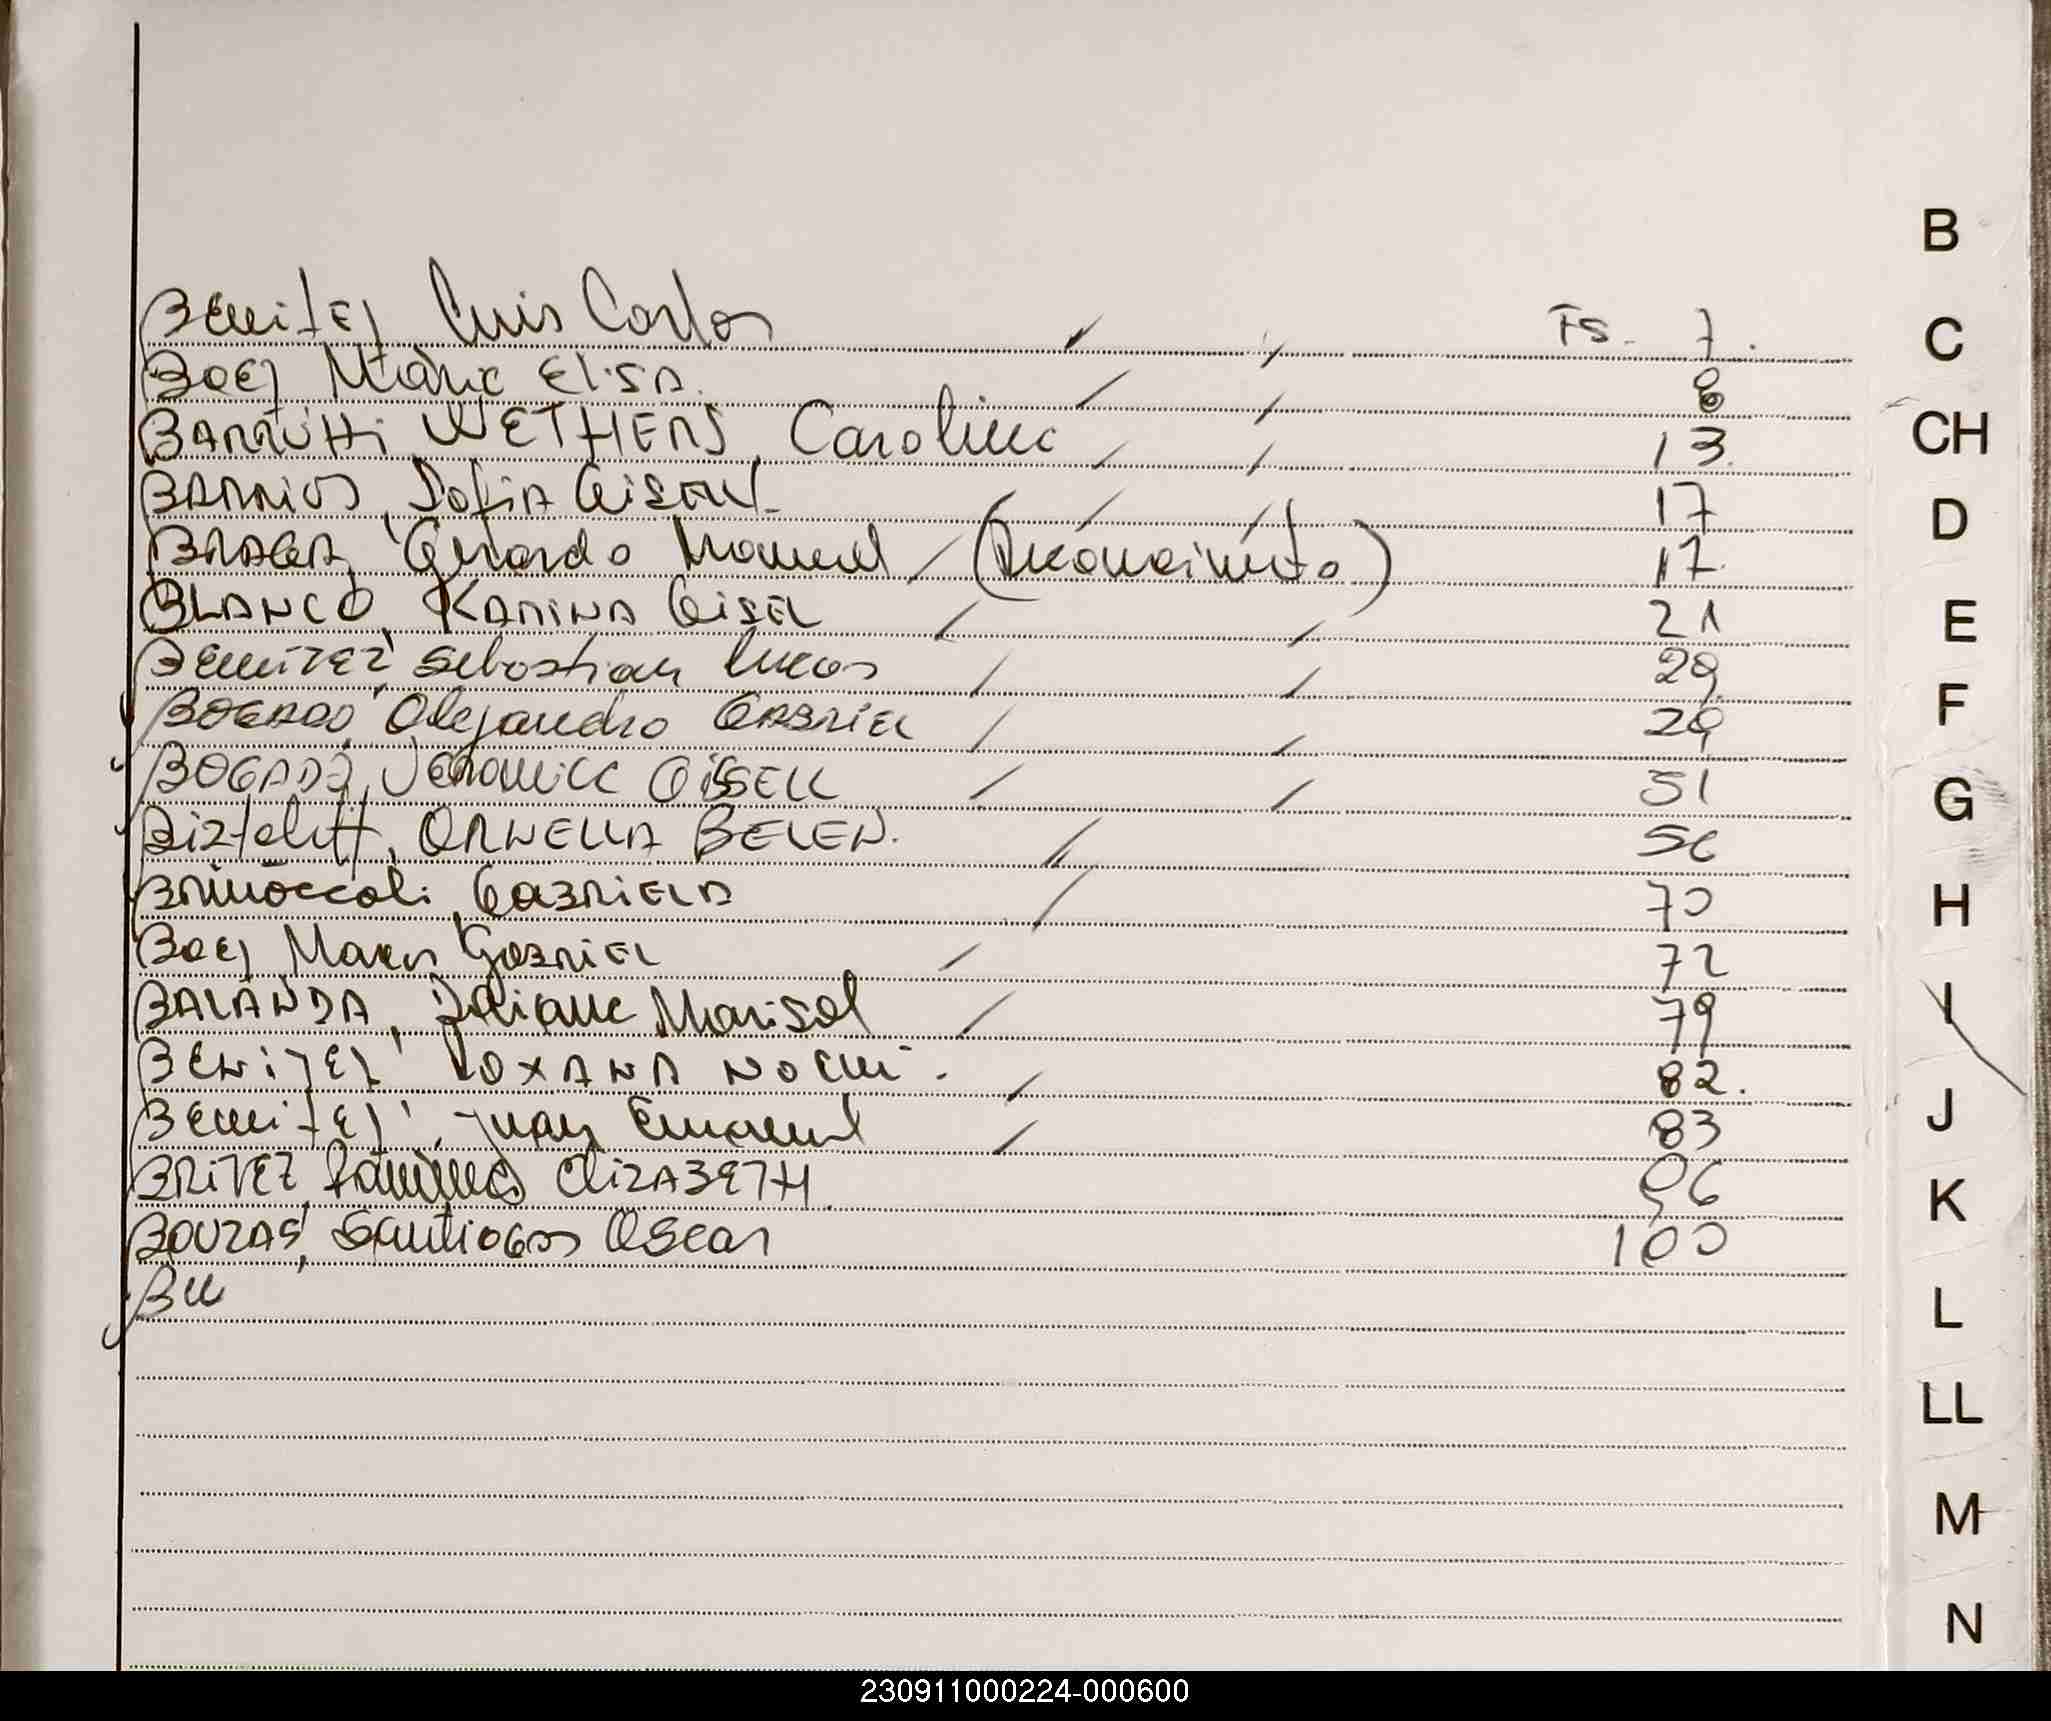 B
BENITEZ Luis Carlos Fs. 7.
C
BAEZ Maria ELISA. 8
BARRUTTI WETHERS, Carolina 13
CH
BARRIOS, Sofia GISELL 17
BRAGA, Gerardo Manuel (Reconocimiento) 17
D
BLANCO, KARINA GISEL 21
E
BENITEZ, Sebastian Lucas 29
BOGADO, Alejandro GABRIEL 29
F
BOGADO, Veronica GISSELL 51
G
ORNELLA BELEN. 56
GABRIELA 70
H
BAEZ Marcos GABRIEL 72
BALANDA, Marisol 79
I
BENITEZ ROXANA NOEMI. 82.
J
BENITEZ, Juan Emanuel 83
BRITEZ, ELIZABETH 96
K
Oscar 100
BU
L
LL
M
N
230911000224-000600